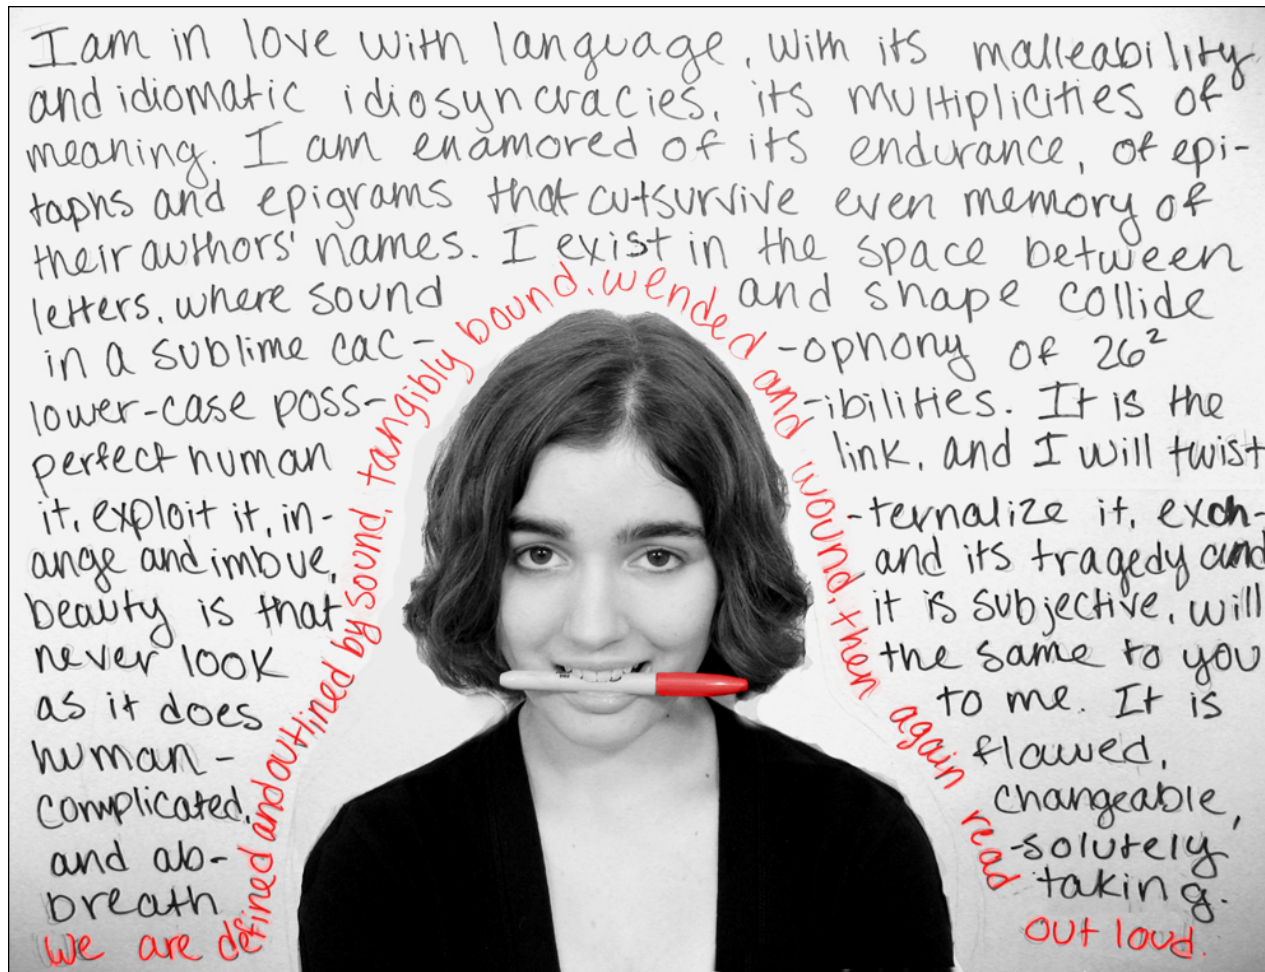 I am in love with language, with its malleability
and idiomatic idiosyncracies, its multiplicities of
meaning. I am enamored of its endurance, of epi-
taphs and epigrams that outsurvive even memory of
their authors' names. I exist in the space between
letters, where sound and shape collide
in a sublime cac- -ophony of 26²
lower-case poss- -ibilities. It is the
perfect human link, and I will twist
it, exploit it, in- -ternalize it, exch-
ange and imbue, and its tragedy and
beauty is that it is subjective, will
never look the same to you
as it does to me. It is
human- flawed,
complicated, changeable,
and ab- -solutely
breath taking.
we are defined and outlined by sound, tangibly bound, wended and wound, then again read out loud.